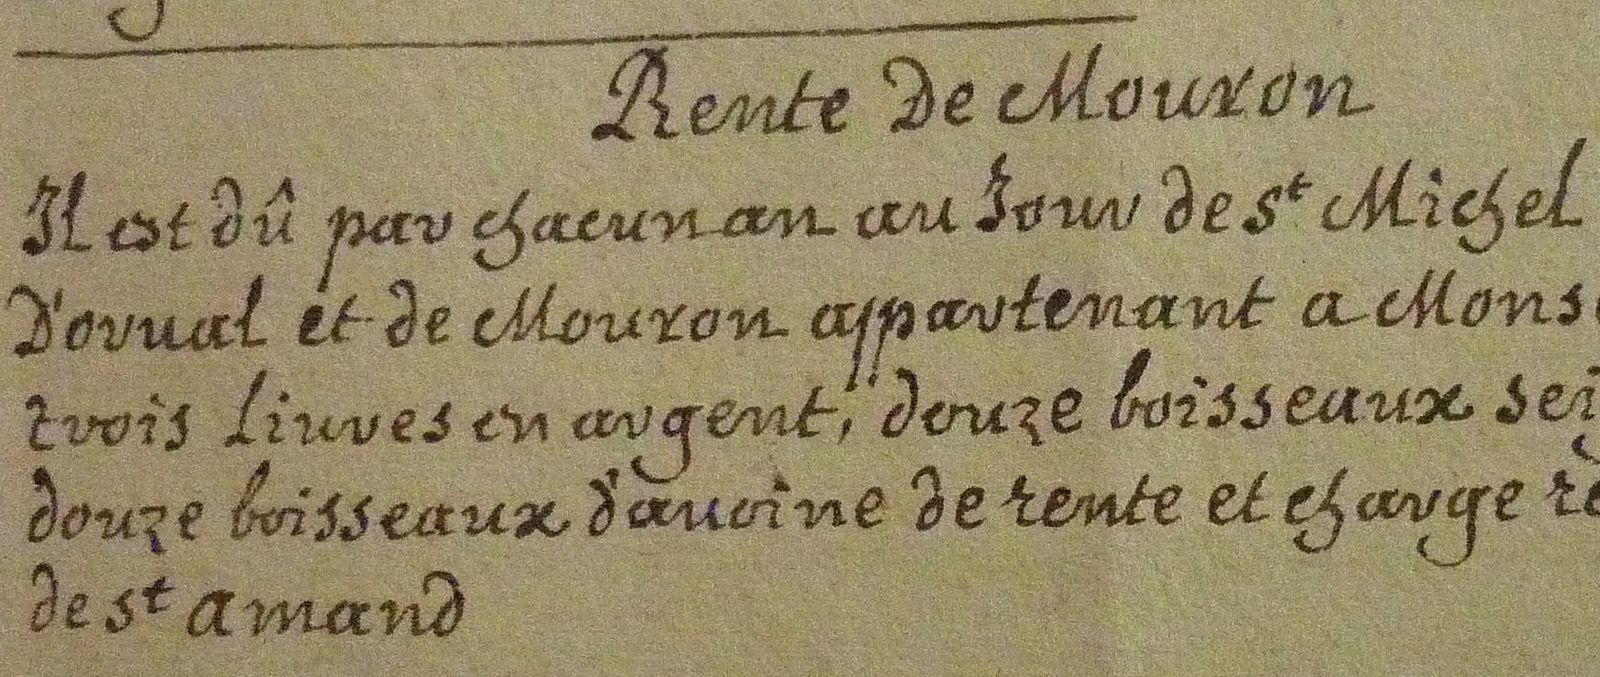 Rente De Mouron
Il est dû par chacun an au Jour de st Michel
D'orual et de Mouron appartenant a Mons
trois Liures en argent, douze boisseaux sei
douze boisseaux d'auoine de rente et charge re
de st amand